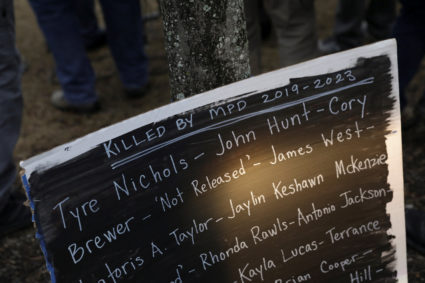 KILLED BY MPD 2019-2023
Tyre Nichols - John Hunt - Cory
Brewer - 'Not Released' - James West -
toris A. Taylor - Jaylin Keshawn McKenzie
d' - Rhonda Rawls - Antonio Jackson -
Kayla Lucas - Terrance
Brian Cooper -
Hill -